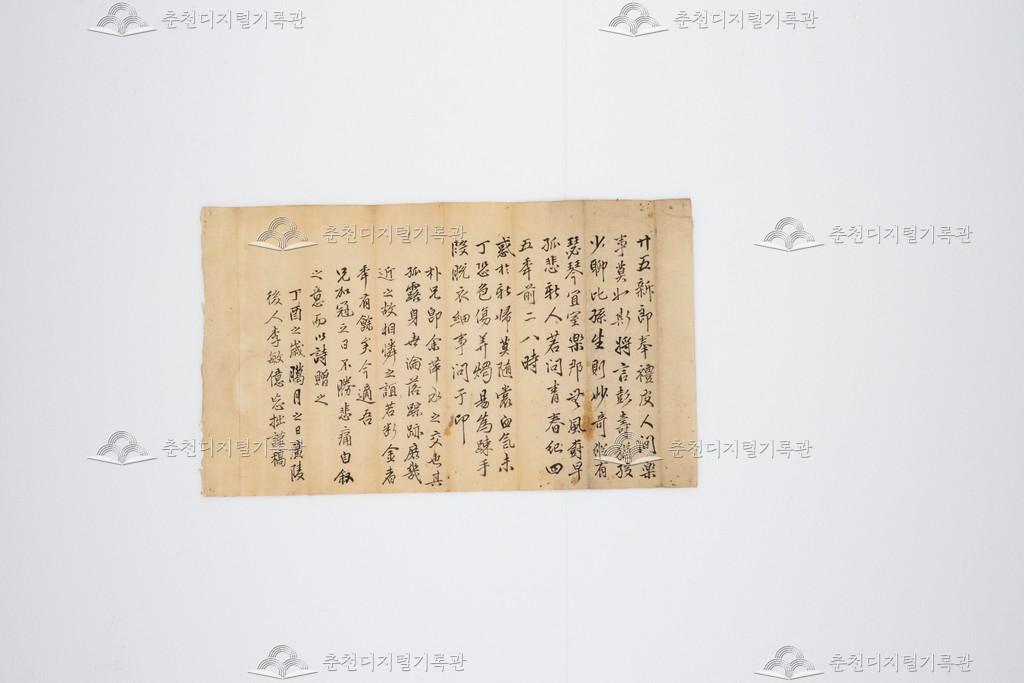 廿五新郎奉禮皮人間樂
事莫如影將言彭壽猶孩
少聊比孫生則妙奇縱有
瑟琴宜室樂那 風 早
孤悲新人若問青春紀四
五年前二八時
惑於新婦莫隨裳血氣未
丁恐色傷弄燭易爲踈手
段脫衣細事問于卯
朴兄卽余萍水之交也其
孤露身世淪落踪跡庶幾
近之故相憐之誼若斷金者
年有餘矣今適吾
兄加冠之日不勝悲痛自叙
之意而以詩贈之
丁酉之歲臘月之日廣陵
後人李敏億忘拙謹稿
춘천디지털기록관
춘천디지털기록관
춘천디지털기록관
춘천디지털기록관
춘천디지털기록관
춘천디지털기록관
춘천디지털기록관
춘천디지털기록관